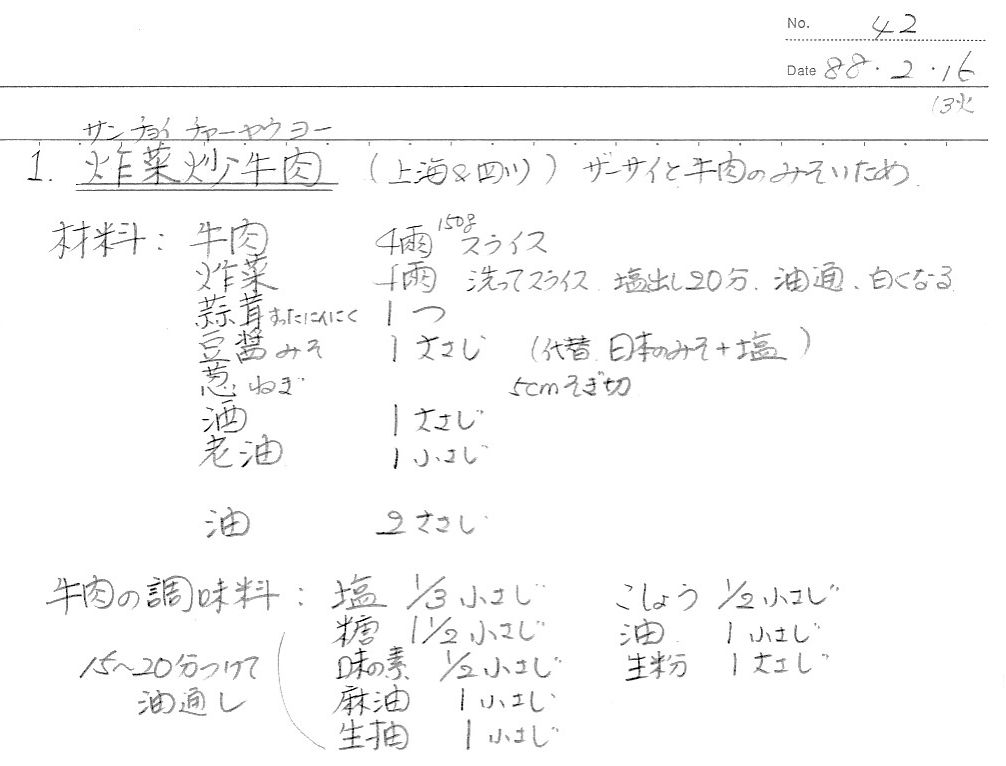 No. 42
Date 88.2.16
13火
サンチョイチャーヤウヨー
1. 炸菜炒牛肉 (上海&四川) ザーサイと牛肉のみそいため
材料: 牛肉 4両 150g スライス
炸菜 4両 洗ってスライス、塩出し20分、油通、白くなる
蒜茸 すったにんにく 1つ
豆醤 みそ 1大さじ (代替 日本のみそ+塩)
葱 ねぎ 5cmそぎ切
酒 1大さじ
老油 1小さじ
油 2大さじ
牛肉の調味料: 塩 1/3小さじ こしょう 1/2小さじ
糖 1 1/2小さじ 油 1小さじ
15~20分つけて 味の素 1/2小さじ 生粉 1大さじ
油通し 麻油 1小さじ
生抽 1小さじ